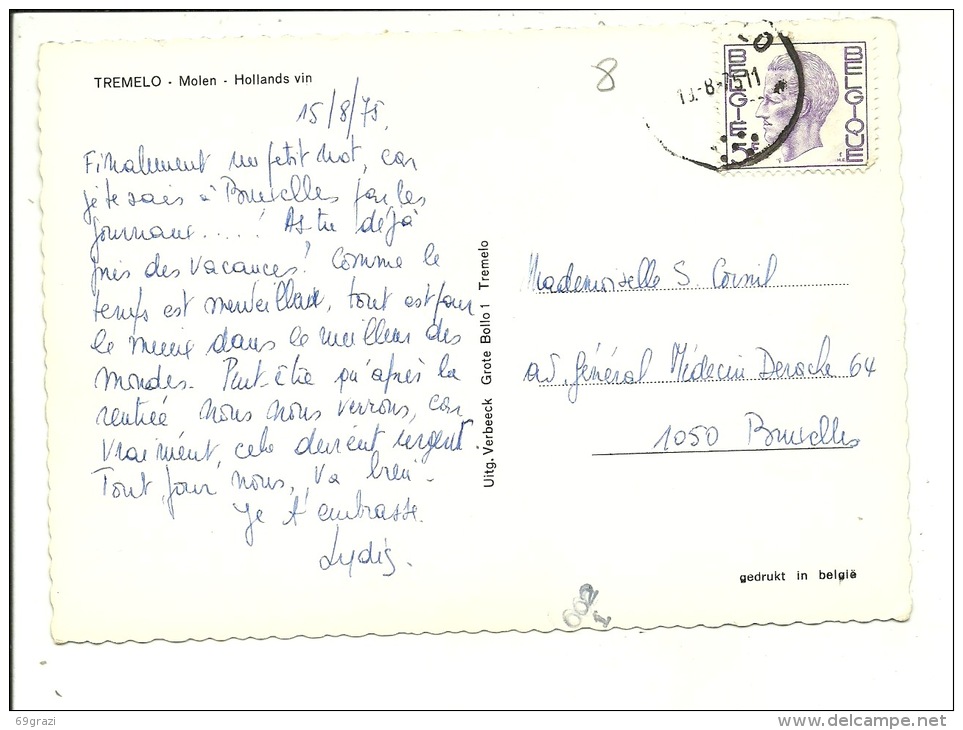 TREMELO - Molen - Hollands vin
8
15/8/75.
Finalement un petit mot, car
je te sais à Bruxelles par les
journaux.....! As tu déjà
pris des vacances? Comme le
temps est merveilleux, tout est pour
le mieux dans le meilleur des
mondes. Peut-être qu'après la
rentrée nous nous verrons, car
vraiment, cela devient urgent.
Tout, pour nous, va bien.
Je t'embrasse.
Lydia.
Uitg. Verbeeck Grote Bollo 1 Tremelo
BELGIE
BELGIQUE
5F
-8-75 11
Mademoiselle S. Cornil
av. Général Médecin Derache 64
1050 Bruxelles
gedrukt in belgië
002
I
69grazi
www.delcampe.net